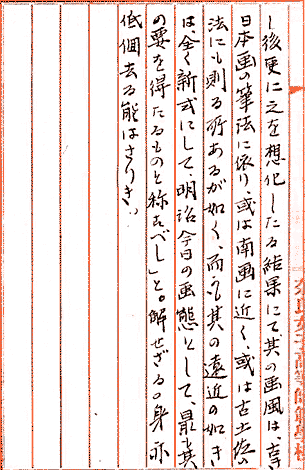 し後更に之を想化したる結果にて其の画風は、古
日本画の筆法に依り、或は南画に近く、或は古土佐の
法にも則る所あるが如く、而も其の遠近の如き
は、全く新式にして、明治今日の画態として、最も其
の要を得たるものと称すべし」と。解せざるの身亦
低佪去る能はざりき。